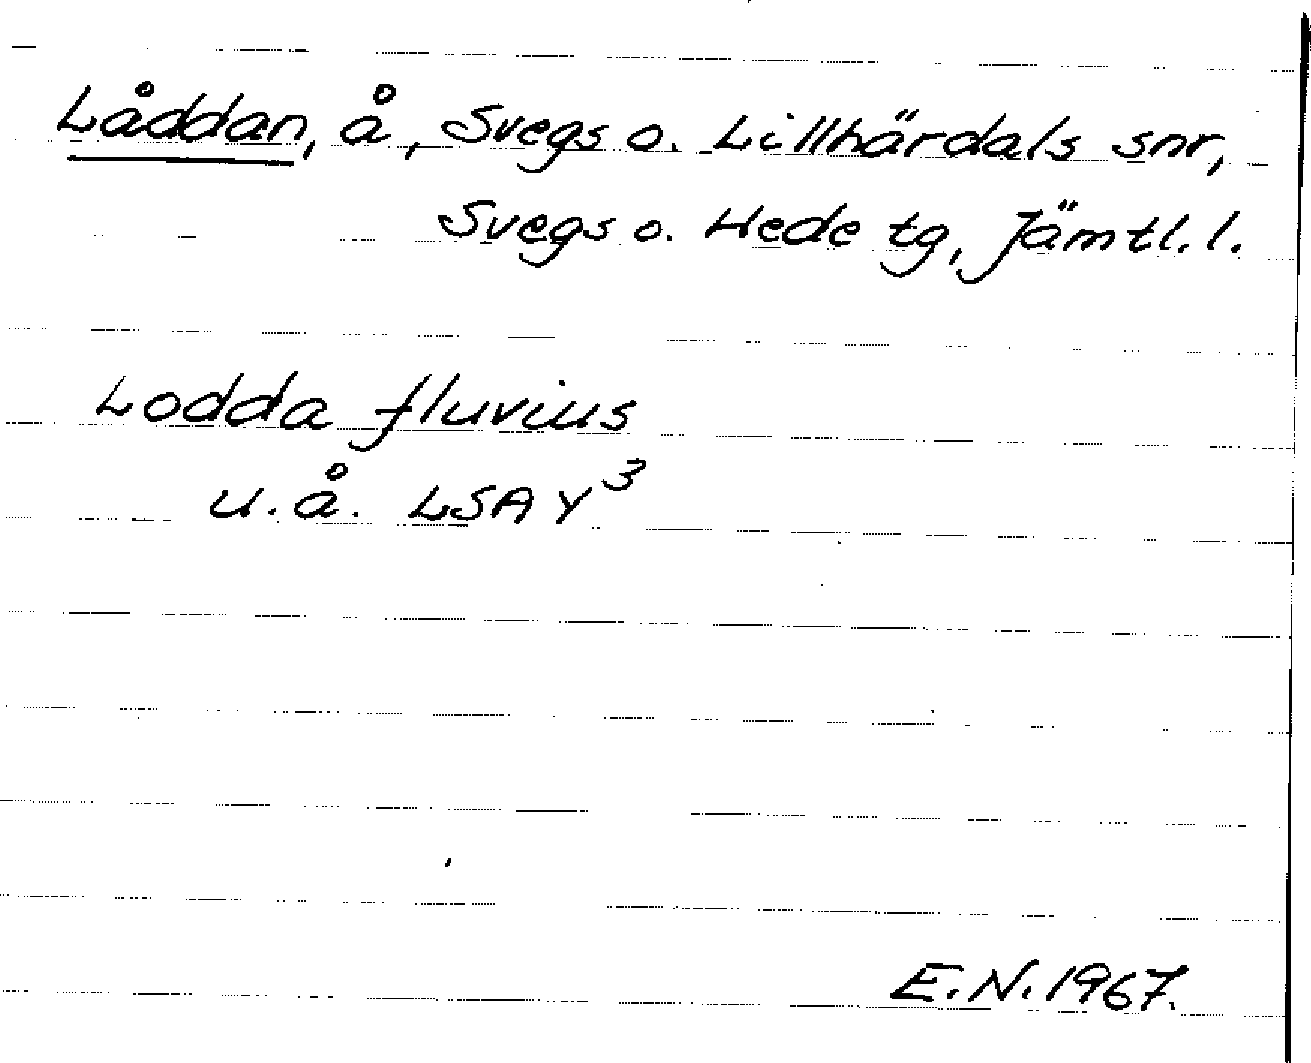 Låddan, å, Svegs o. Lillhärdals snr,
Svegs o. Hede tg, Jämtl. l.
Lodda fluvius
u. å. LSA Y³
E. N. 1967.